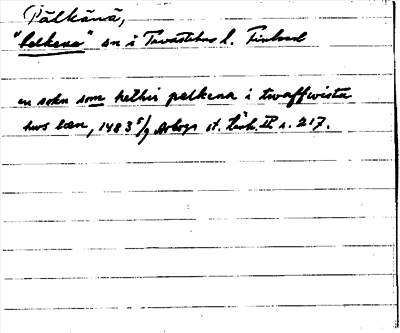 Pälkänä,
"belkena" sn i Tavastehus l. Finland
en sokn som hethir pelkena i twaffwista
hws læn, 1483 5/9 Arboga st. Tänk. IV s. 217.